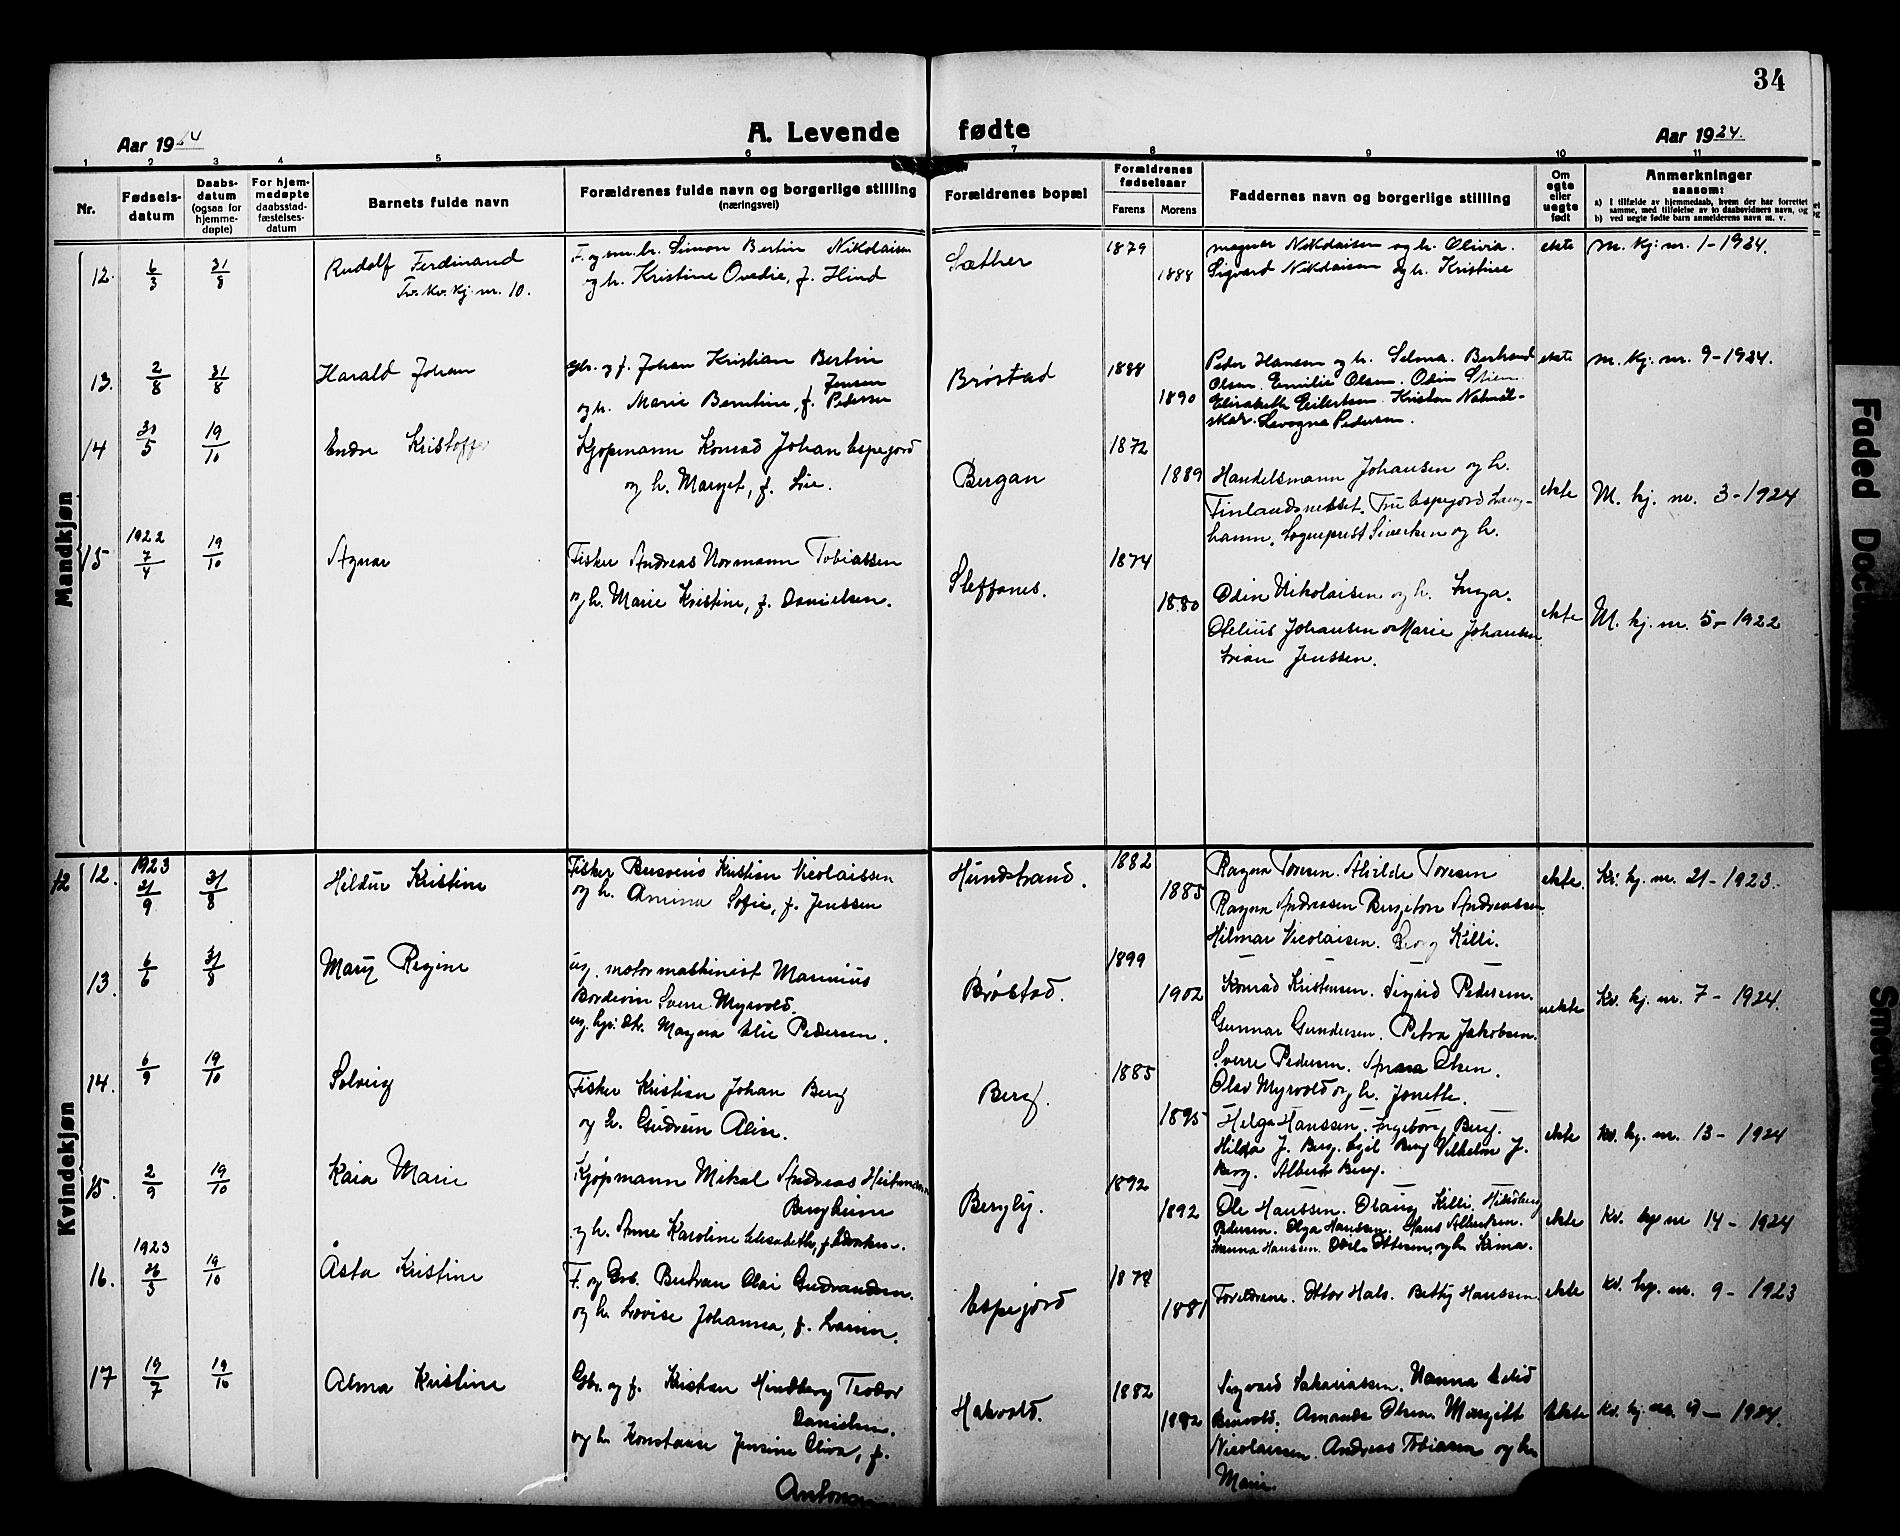 34
Aar 1924
A. Levende fødte
Aar 1924.
1 2 3 4 5 6 7 8 9 10 11
Nr.
Fødsels-
datum
Daabs-
datum
(ogsaa for
hjemme-
døpte)
For hjem-
medøpte
daabsstad-
fæstelses-
datum
Barnets fulde navn
Forældrenes fulde navn og borgerlige stilling
(næringsvei)
Forældrenes bopæl
Forældrenes
fødselsaar
Farens Morens
Faddernes navn og borgerlige stilling
Om
egte
eller
uegte
født
Anmerkninger
saasom:
a) I tilfælde av hjemmedaab, hvem der har forrettet
samme, med tilføielse av to daabsvidners navn, og
b) ved uegte fødte barn anmelderens navn m. v.
Mandkjøn
12. 6/3 31/8
Rudolf Ferdinand
Tv. kv. kj. nr. 10.
F. og sm. br. Simon Bertin Nikolaisen
og h. Kristine Ovedie, f. Hind
Sæther
1879
1888
Magnus Nikolaisen og h. Olivia.
Sigvard Nikolaisen og h. Kristine
ekte
M. kj. nr. 1-1924.
13. 2/8 31/8
Harald Johan
gbr. og f. Johan Kristian Bertin
Jensen
og h. Marie Berntine, f. Pedersen
Brøstad
1888
1890
Peder Hansen og h. Selma. Bertrand
Olsen. Emilie Olsen. Odin Stien.
Elisabeth Eilertsen. Kristen
skar. Pedersen.
ekte
M. kj. nr. 9-1924.
14 31/5 19/10
Endre Kristoffer
Kjøpmann Konrad Johan Espejord
og h. Margit, f. Lie.
Bergan
1872
1889
Handelsmann Johansen og h.
Finlandsnesset. Fru Espejord Lang-
hamn. Sogneprest Sivertsen og h.
ekte
M. kj. nr. 3-1924
15 1922 7/4 19/10
Agnar
Fisker Andreas Normann Tobiassen
og h. Marie Kristine, f. Danielsen.
Steffanes.
1874
1880
Odin Nikolaisen og h. Inga.
Otelius Johansen og Marie Johansen
Jenssen.
ekte
M. kj. nr. 5-1922
Kvindekjøn
12 12. 1923 21/9 31/8
Hildur Kristine
Fisker Kristian Nicolaissen
og h. Amina Sofie, f. Jenssen
Hundstrand.
1882
1885
Ragna Toresen. Alvilde Toresen
Ragna Andreasen Bergiton Andreassen
Hilmar Nicolaisen. Georg Killi.
ekte.
Kv. kj. nr. 21-1923.
13. 6/6 31/8
Mary Regine
ug. motormaskinist Marinius
Bordevin Sverre Myrvold.
ug. hjv. dtr. Magna Elie Pedersen.
Brøstad.
1899
1902
Konrad Kristensen. Sigrid Pedersen.
Gunnar Gundersen. Petra Jakobsen.
Sverre Pedersen. Anna Olsen.
Olav Myrvold og h. Jonette.
uekte
Kv. kj. nr. 7-1924.
14. 6/9 19/10
Solveig
Fisker Kristian Johan Berg
og h. Gudrun Aline.
Berg.
1885
1895
Helga Hanssen. Ingeborg Berg.
Hilda J. Berg. Egil Berg Vilhelm J.
Berg. Albert Berg.
ekte
Kv. kj. nr. 13-1924
15. 2/9 19/10
Kaia Marie
Kjøpmann Mikal Andreas Heitmann
Bergheim
og h. Anne Karoline Elisabeth, f.
Bergly.
1892
1892
Ole Hanssen. Olaug Killi. Hindberg
Pedersen. Olga Hanssen. Hans Albertsen.
Hanna Hanssen. Ottesen og h.
ekte
Kv. kj nr 14-1924
16. 1923 26/3 19/10
Åsta Kristine
F. og Grb. Bertran Olai Gudrandsen.
og h. Lovise Johanna, f. Larsen.
Espejord
1874
1881
Foreldrene. Ottor Hals. Betty Hanssen.
ekte
Kv. kj. nr. 9-1923
17 19/7 19/10
Alma Kristine
Gbr. og f. Kristian Hindberg Teodor
Danielsen.
og h. Konstanse Jensine Oliva, f.
Antonsen
Hakvold.
1882
1882
Sigvard Sakariassen. Hanna
Amanda Olsen. Margitt
Nicolaissen. Andreas Tobiasen og h.
Marie.
Ekte
Kv. kj. nr. 9-1924.
Faded Doc
Smea